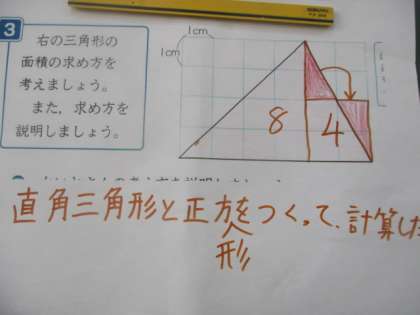 3
右の三角形の
面積の求め方を
考えましょう。
また，求め方を
説明しましょう。
1cm
1cm
8
4
直角三角形と正方をつくって、計算した
形